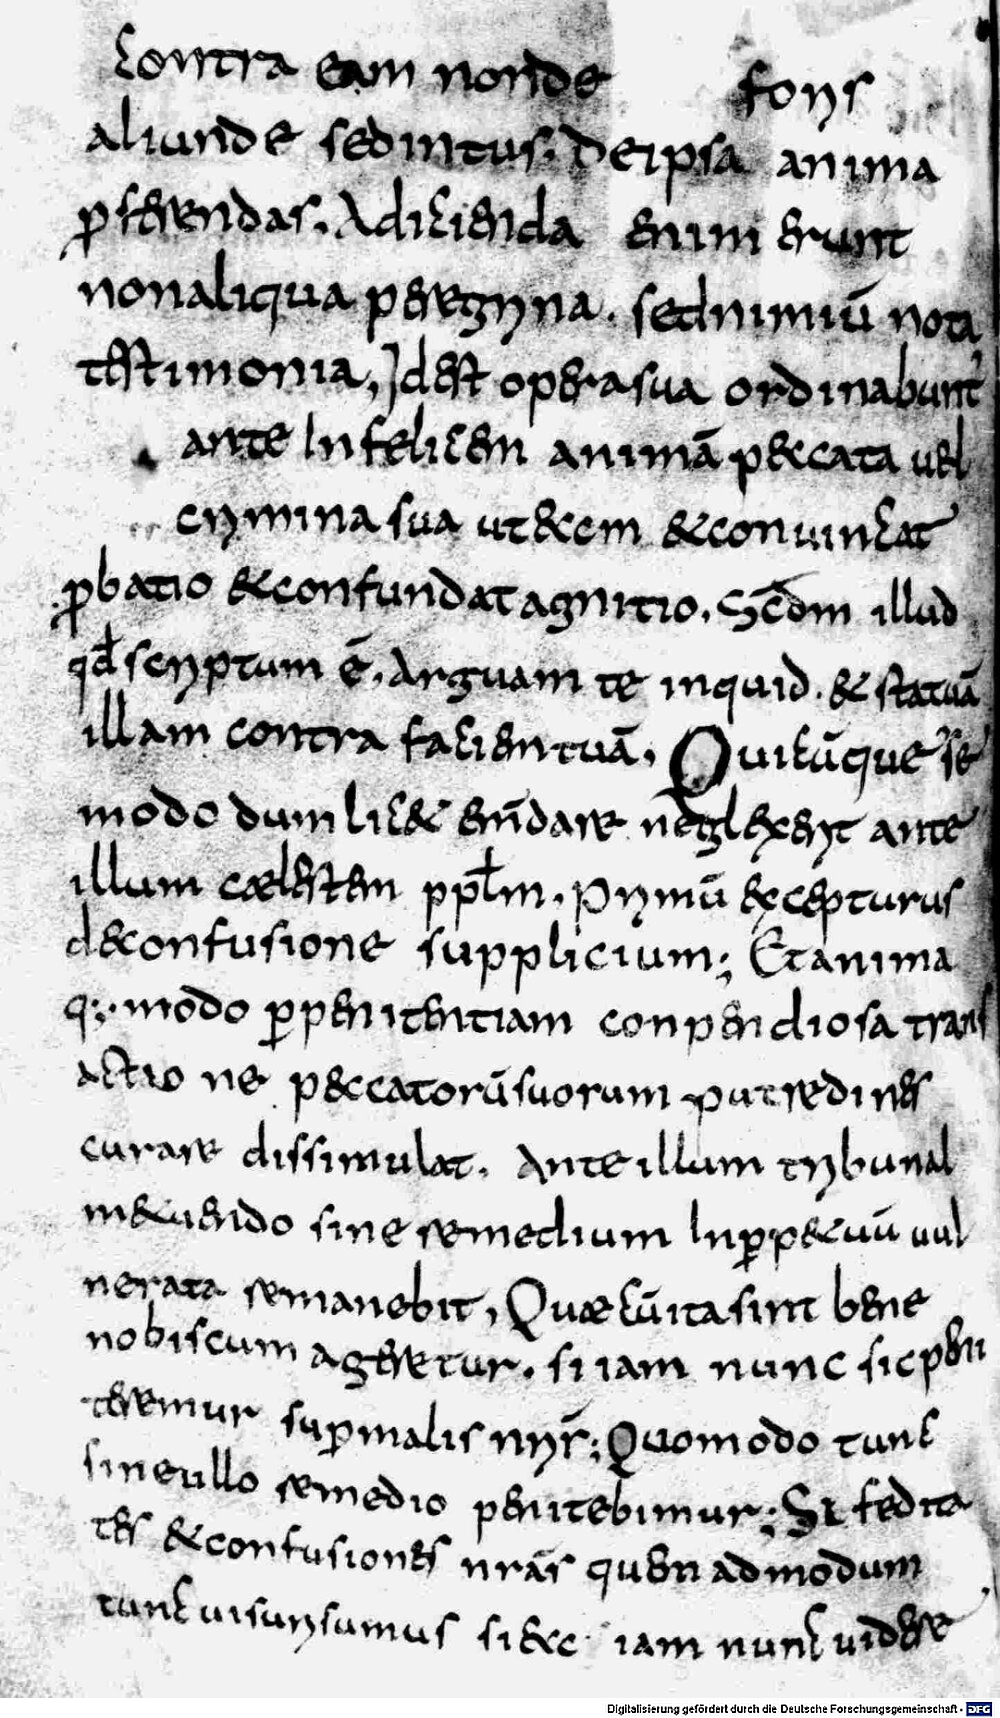 contra eam non de foris
aliunde sed intus. De ipsa anima
ꝓferendas. Adicienda enim erunt
non aliqua peregrina. sed nimiū nota
testimonia, Idest opera sua ordinabunt'
ante Infelicem animā peccata uel
crimina sua ut & eam & conuincat
ꝓbatio & confundat agnitio. Scdm illud
qd scriptum ē. Arguam te inquid. & statuā
illam contra faciem tuā. Quicūque se
modo dum lic& emdare neglexerit ante
illum cælestem ppl̄m. Primū excepturus
de confusione supplicium; Et anima
q; modo ꝑ penitentiam conpendiosa trans
actio ne peccatorū suorum putredines
curare dissimulat. Ante illum tribunal
m&uendo sine remedium In ꝑp&uū uul
nerata remanebit, Quæ cū ita sint bene
nobiscum ageretur. si iam nunc sic peni
teremur suꝑ malis nr̄is; Quomodo tunc
sine ullo remedio penitebimur; Si fedita
tes & confusiones nrās quem admodum
tunc uisuri sumus si ec iam nunc uidere